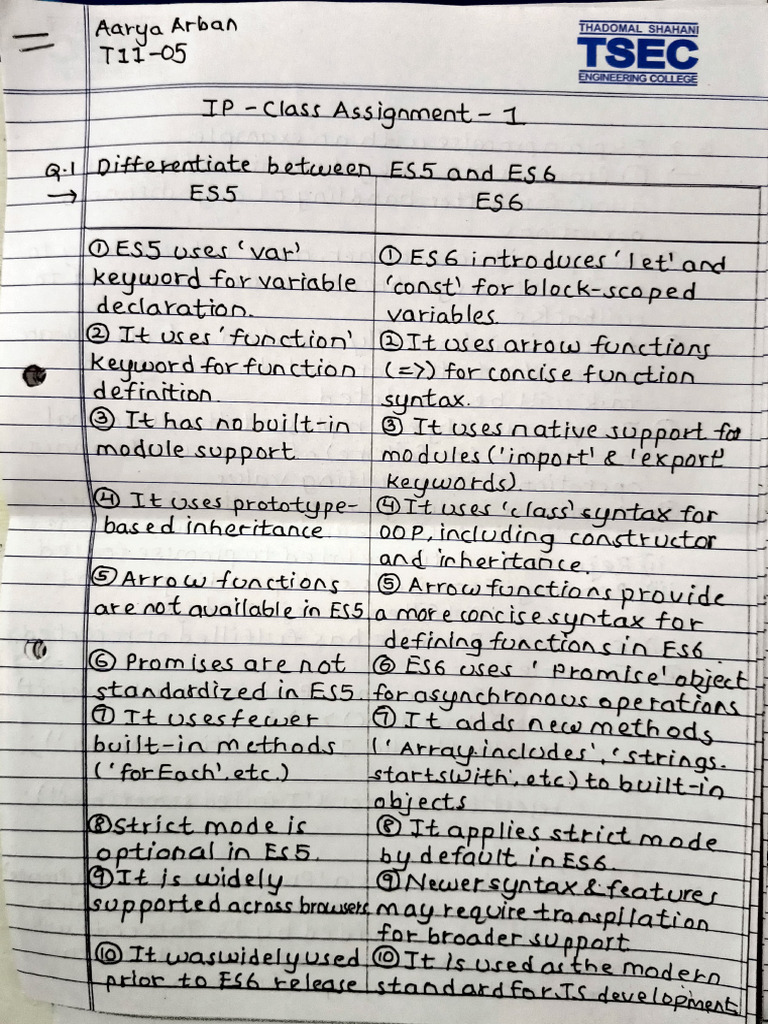 Aarya Arban
T11-05
THADOMAL SHAHANI
TSEC
ENGINEERING COLLEGE
IP - Class Assignment - 1
Q.1 Differentiate between ES5 and ES6
→ ES5
① ES5 uses 'var'
keyword for variable
declaration.
② It uses 'function'
keyword for function
definition.
③ It has no built-in
module support
④ It uses prototype-
based inheritance
⑤ Arrow functions
are not available in ES5
⑥ Promises are not
standardized in ES5.
⑦ It uses fewer
built-in methods
('forEach', etc.)
⑧ Strict mode is
optional in ES5.
⑨ It is widely
supported across browsers
⑩ It was widely used
prior to ES6 release
ES6
① ES6 introduces 'let' and
'const' for block-scoped
variables.
② It uses arrow functions
(=>) for concise function
syntax.
③ It uses native support for
modules ('import' & 'export'
keywords).
④ It uses 'class' syntax for
OOP, including constructor
and inheritance.
⑤ Arrow functions provide
a more concise syntax for
defining functions in ES6.
⑥ ES6 uses 'Promise' object
for asynchronous operations
⑦ It adds new methods
('Array.includes', 'strings.
startsWith', etc) to built-in
objects
⑧ It applies strict mode
by default in ES6.
⑨ Newer syntax & features
may require transpilation
for broader support
⑩ It is used as the modern
standard for JS development